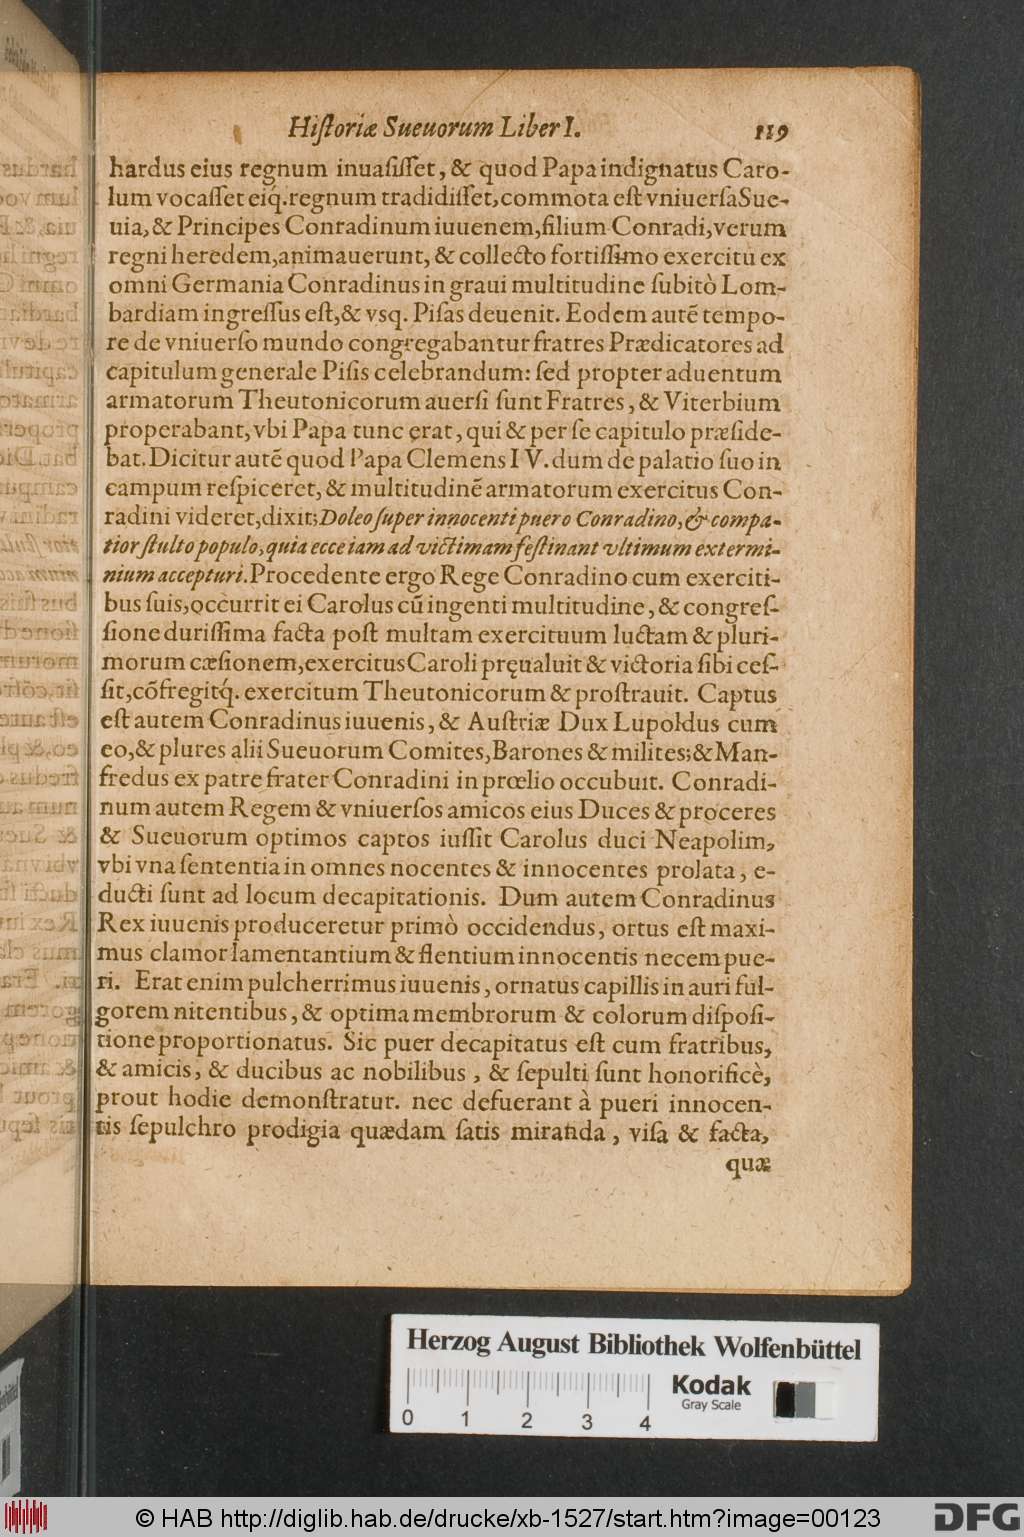 Hiſtoriæ Sueuorum Liber I. 119
hardus eius regnum inuaſiſſet, & quod Papa indignatus Caro-
lum vocaſſet eiq́. regnum tradidiſſet, commota eſt vniuerſa Sue-
uia, & Principes Conradinum iuuenem, filium Conradi, verum
regni heredem, animauerunt, & collecto fortiſſimo exercitu ex
omni Germania Conradinus in graui multitudine ſubitò Lom-
bardiam ingreſſus eſt, & vsq. Piſas deuenit. Eodem autẽ tempo-
re de vniuerſo mundo congregabantur fratres Prædicatores ad
capitulum generale Piſis celebrandum: ſed propter aduentum
armatorum Theutonicorum auerſi ſunt Fratres, & Viterbium
properabant, vbi Papa tunc erat, qui & per ſe capitulo præſide-
bat. Dicitur autẽ quod Papa Clemens IV. dum de palatio ſuo in
campum reſpiceret, & multitudinẽ armatorum exercitus Con-
radini videret, dixit; Doleo ſuper innocenti puero Conradino, & compa-
tior ſtulto populo, quia ecce iam ad victimam feſtinant vltimum extermi-
nium accepturi. Procedente ergo Rege Conradino cum exerciti-
bus ſuis, occurrit ei Carolus cũ ingenti multitudine, & congreſ-
ſione duriſſima facta poſt multam exercituum luctam & pluri-
morum cæſionem, exercitus Caroli pręualuit & victoria ſibi ceſ-
ſit, cõfregitq́. exercitum Theutonicorum & proſtrauit. Captus
eſt autem Conradinus iuuenis, & Auſtriæ Dux Lupoldus cum
eo, & plures alii Sueuorum Comites, Barones & milites; & Man-
fredus ex patre frater Conradini in prœlio occubuit. Conradi-
num autem Regem & vniuerſos amicos eius Duces & proceres
& Sueuorum optimos captos iuſſit Carolus duci Neapolim,
vbi vna ſententia in omnes nocentes & innocentes prolata, e-
ducti ſunt ad locum decapitationis. Dum autem Conradinus
Rex iuuenis produceretur primò occidendus, ortus eſt maxi-
mus clamor lamentantium & flentium innocentis necem pue-
ri. Erat enim pulcherrimus iuuenis, ornatus capillis in auri ful-
gorem nitentibus, & optima membrorum & colorum diſpoſi-
tione proportionatus. Sic puer decapitatus eſt cum fratribus,
& amicis, & ducibus ac nobilibus, & ſepulti ſunt honorificè,
prout hodie demonſtratur. nec defuerant à pueri innocen-
tis ſepulchro prodigia quædam ſatis miranda, viſa & facta,
quæ
Herzog August Bibliothek Wolfenbüttel
Kodak
Gray Scale
0 1 2 3 4
© HAB http://diglib.hab.de/drucke/xb-1527/start.htm?image=00123
DFG